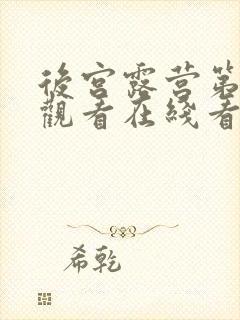 後宮露营第
觀看在綫看
希乾